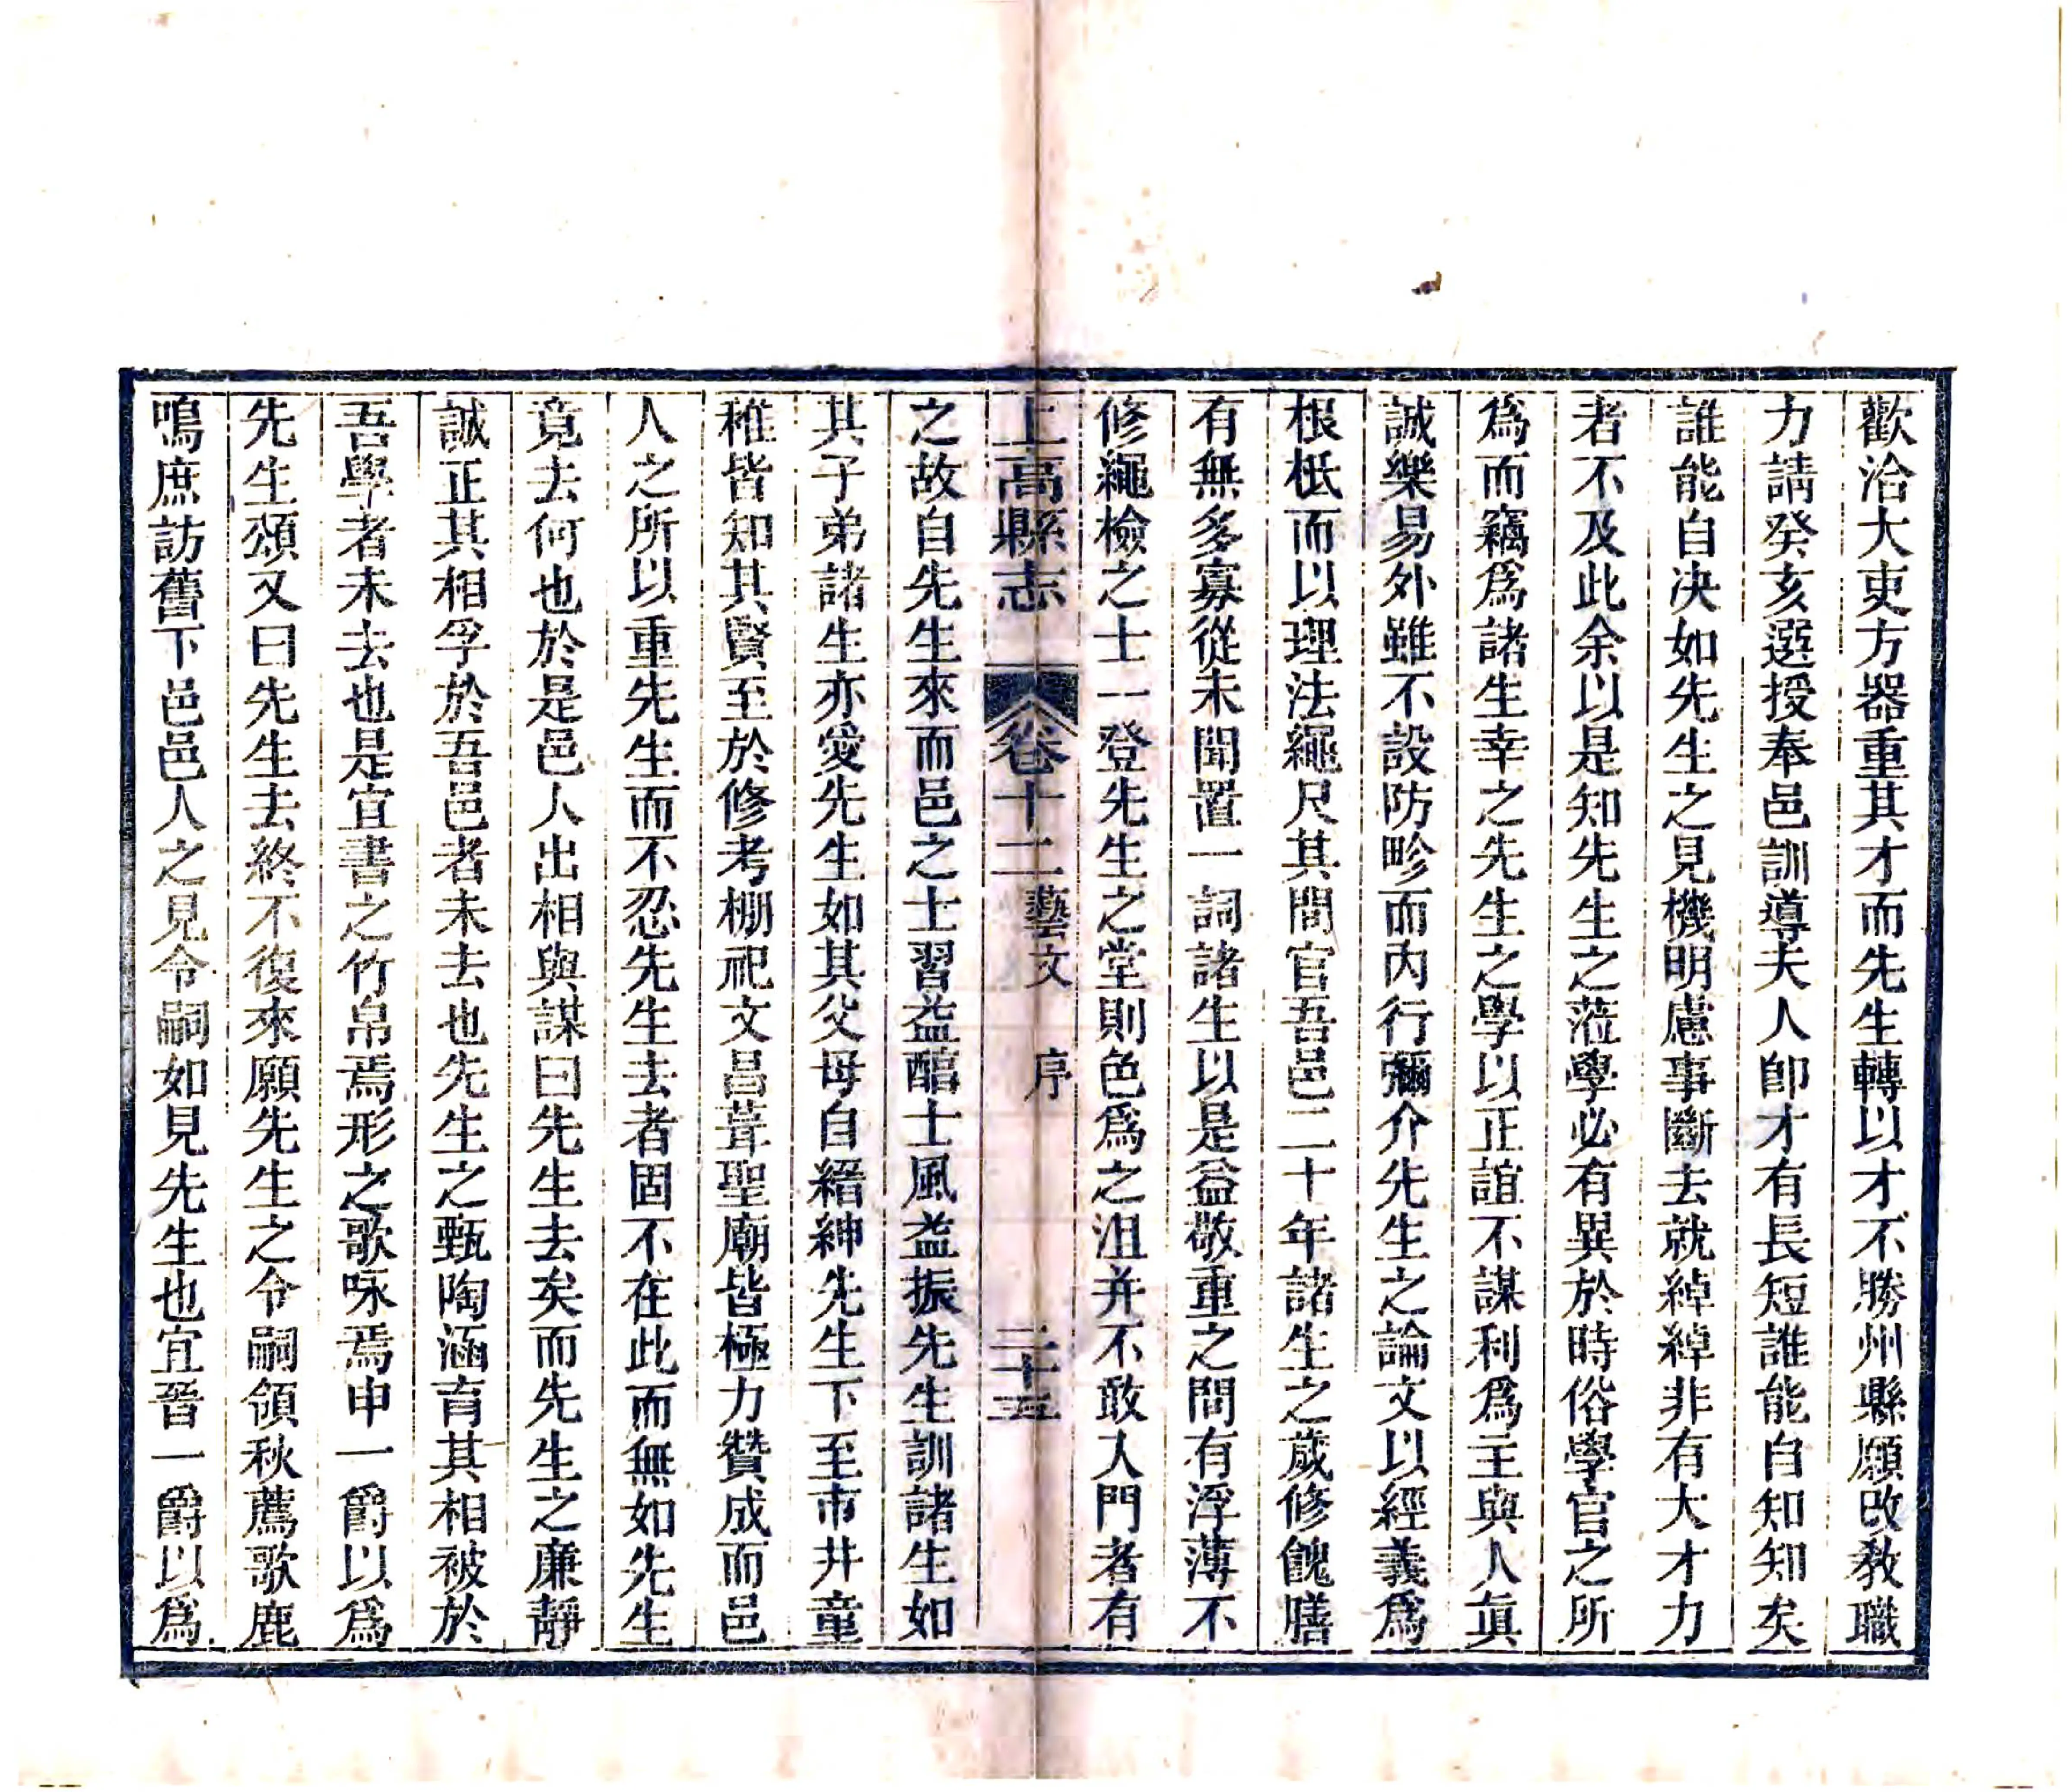 歡洽大吏方器重其才而先生轉以才不勝州縣願改教職
力請癸亥選授奉邑訓導夫人卽才有長短誰能自知知矣
誰能自决如先生之見機明慮事斷去就綽綽非有大才力
者不及此余以是知先生之蒞學必有異於時俗學官之所
爲而竊爲諸生幸之先生之學以正誼不謀利爲主與人眞
誠樂易外雖不設防畛而內行彌介先生之論文以經義爲
根柢而以理法繩尺其間官吾邑二十年諸生之歲修餽膳
有無多寡從未聞置一詞諸生以是益敬重之間有浮薄不
修繩檢之士一登先生之堂則色爲之沮并不敢入門者有
上高縣志 卷十二 藝文 序 二十五
之故自先生來而邑之士習益醇士風益振先生訓諸生如
其子弟諸生亦愛先生如其父母自縉紳先生下至市井童
稚皆知其賢至於修考棚祀文昌葺聖廟皆極力贊成而邑
人之所以重先生而不忍先生去者固不在此而無如先生
竟去何也於是邑人出相與謀曰先生去矣而先生之廉靜
誠正其相孚於吾邑者未去也先生之甄陶涵育其相被於
吾學者未去也是宜書之竹帛焉形之歌咏焉申一爵以爲
先生頌又曰先生去終不復來願先生之令嗣領秋薦歌鹿
鳴庶訪舊下邑邑人之見令嗣如見先生也宜晉一爵以爲